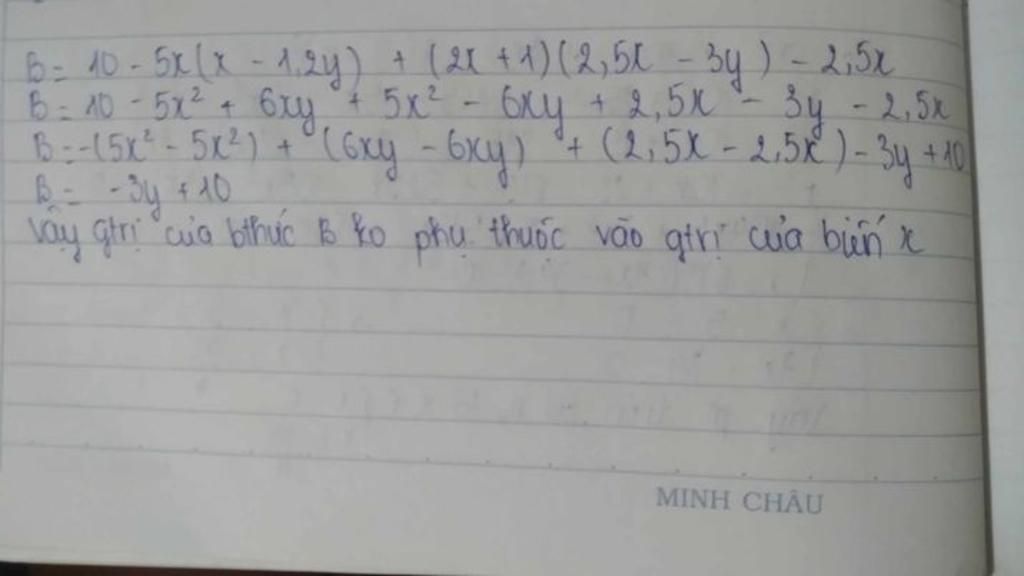 B = 10 - 5x(x - 1,2y) + (2x + 1)(2,5x - 3y) - 2,5x
B = 10 - 5x² + 6xy + 5x² - 6xy + 2,5x - 3y - 2,5x
B = -(5x² - 5x²) + (6xy - 6xy) + (2,5x - 2,5x) - 3y + 10
B = -3y + 10
Vậy gtrị của bthức B ko phụ thuộc vào gtrị của biến x
MINH CHÂU